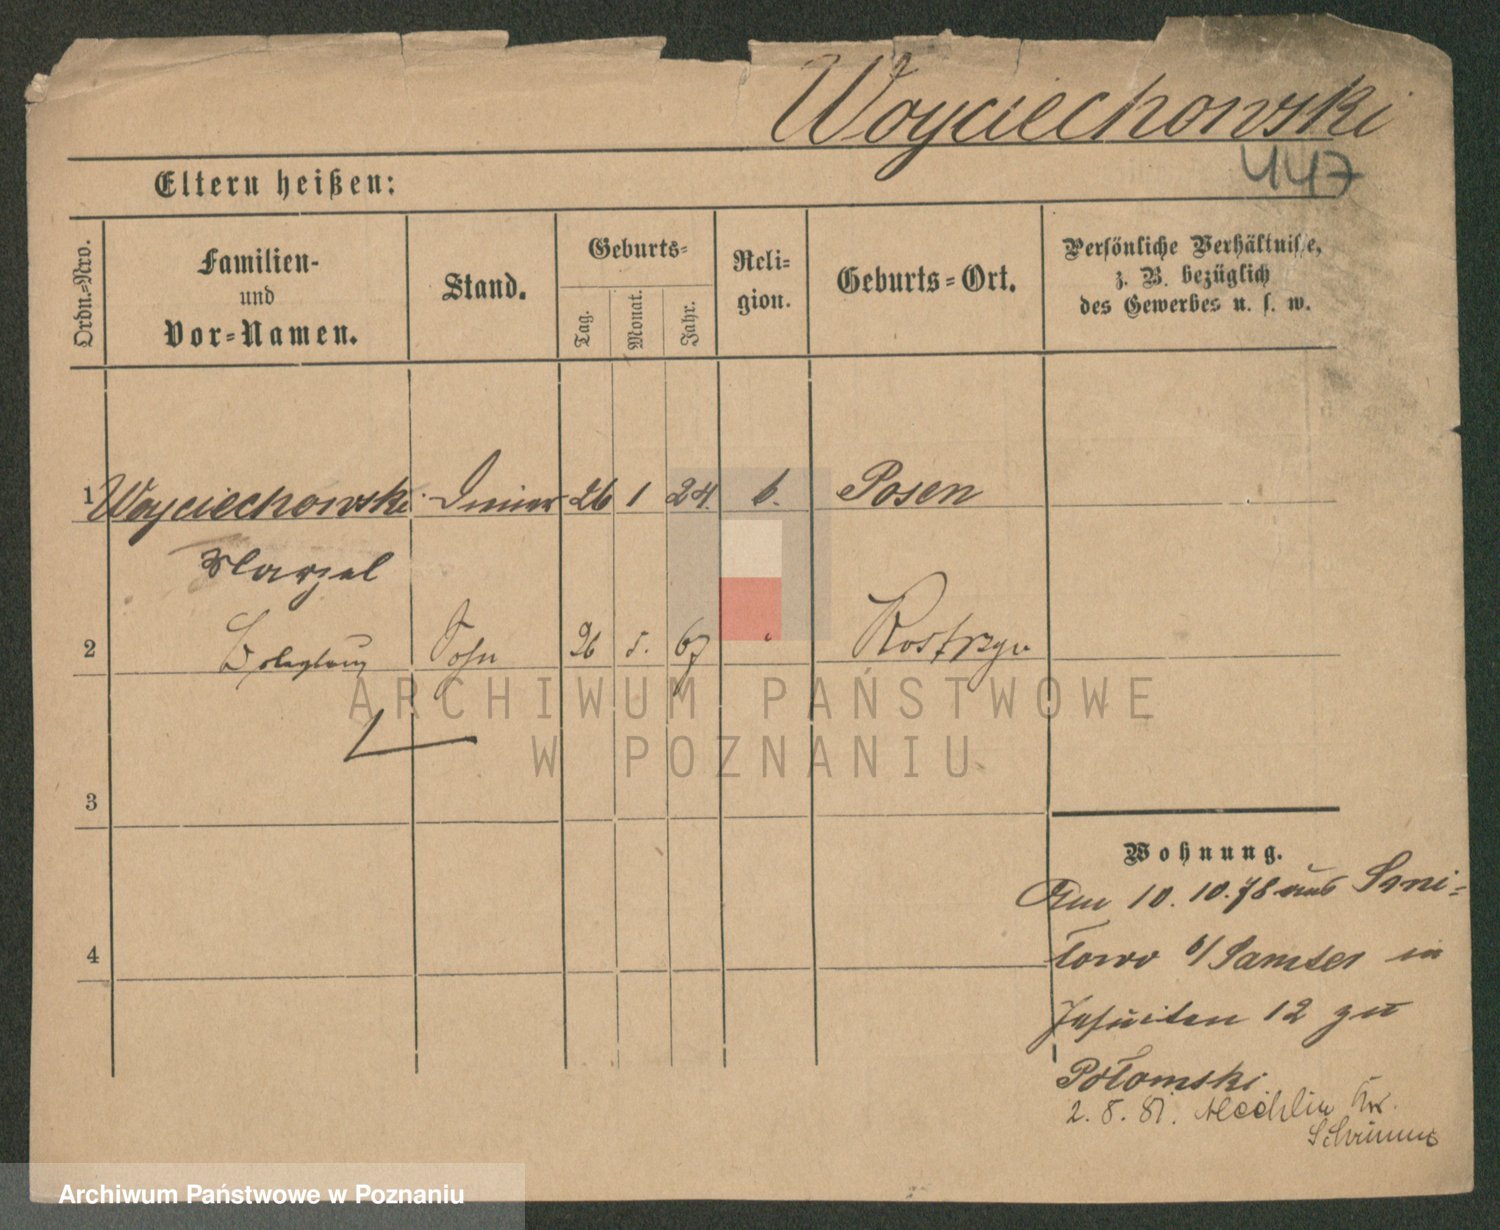 Woyciechowski
447
Eltern heißen:
Ordn.-Nro.
Familien-
und
Vor-Namen.
Stand.
Geburts-
Tag.
Monat.
Jahr.
Reli-
gion.
Geburts-Ort.
Persönliche Verhältnisse,
z. B. bezüglich
des Gewerbes u. s. w.
1 Woyciechowski 26 1 24. k. Posen
Marzel
2 Boleslaus Sohn 26 5. 67 Kostrzyn
3
4
Wohnung.
Am 10. 10. 78 aus Smi-
łowo b/ Samter in
Jesuiten 12 zu
Połomski
2. 8. 81. Mechlin Kr.
Schrimm
ARCHIWUM PAŃSTWOWE
W POZNANIU
Archiwum Państwowe w Poznaniu